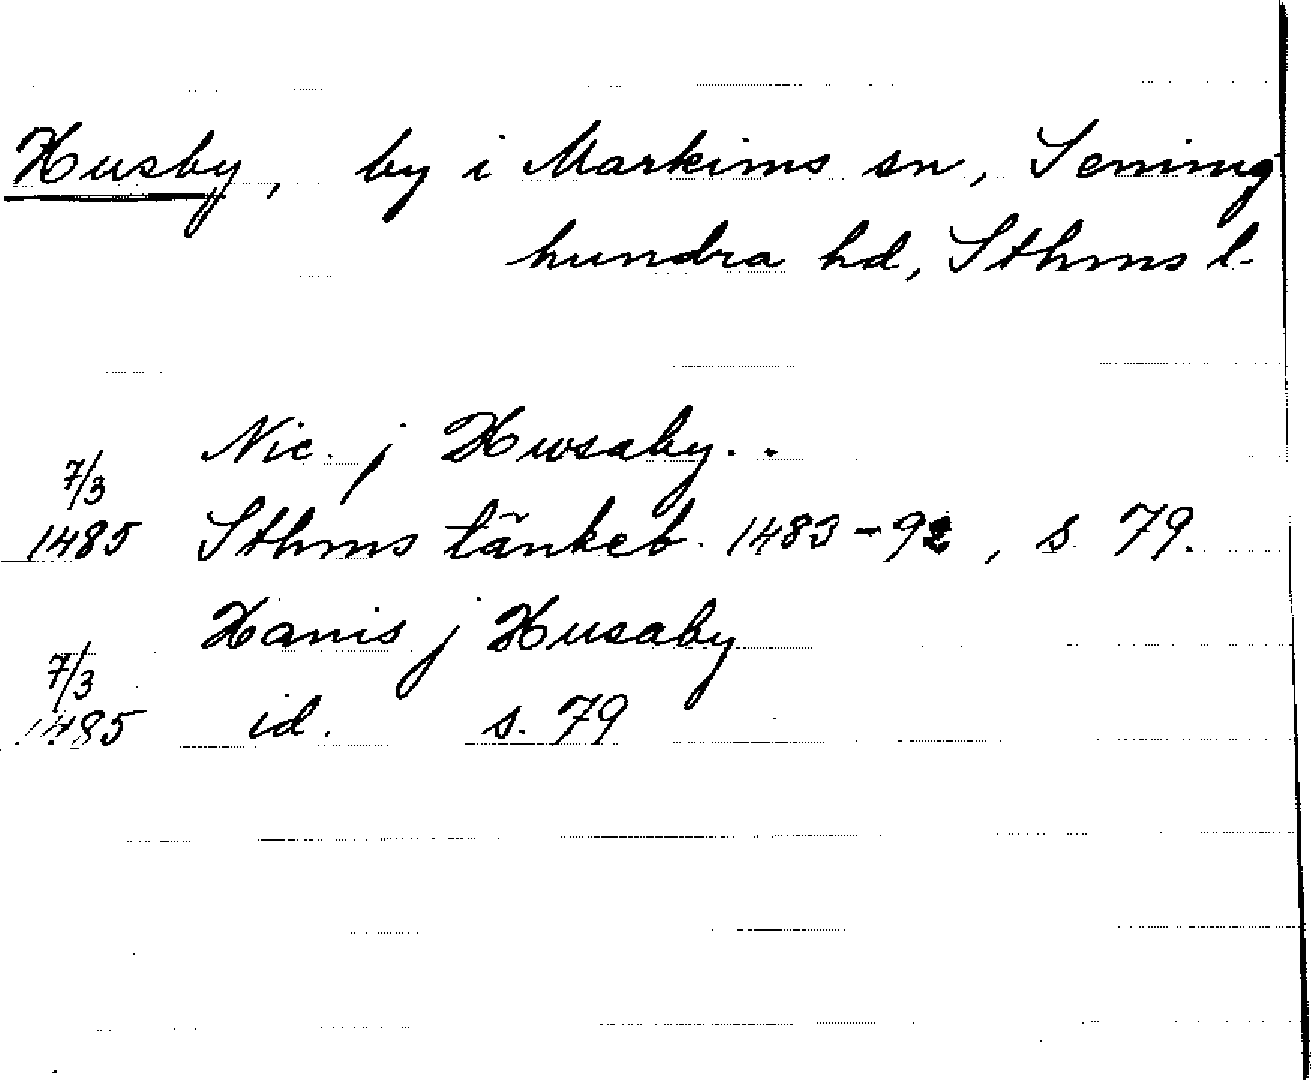 Husby, by i Markims sn, Seming
hundra hd, Sthms l.
Nic. j Hwsaby..
7/3
1485 Sthms tänkeb. 1483-92, s 79.
Hanis j Husaby
7/3
1485 id. s. 79